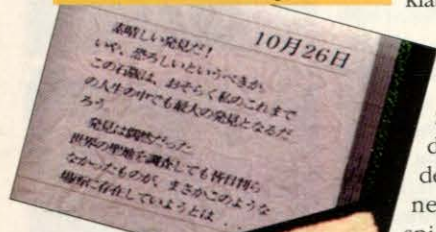 10月26日
素晴しい発見だ!
いや、恐ろしいというべきか、
この石版は、おそらく私のこれまで
の人生の中でも最大の発見となるだ
ろう。
発見は偶然だった
世界の聖地を調査しても皆目判ら
なかったものが、まさかこのような
場所に存在していようとは・・
kla
d
de
ne
spi